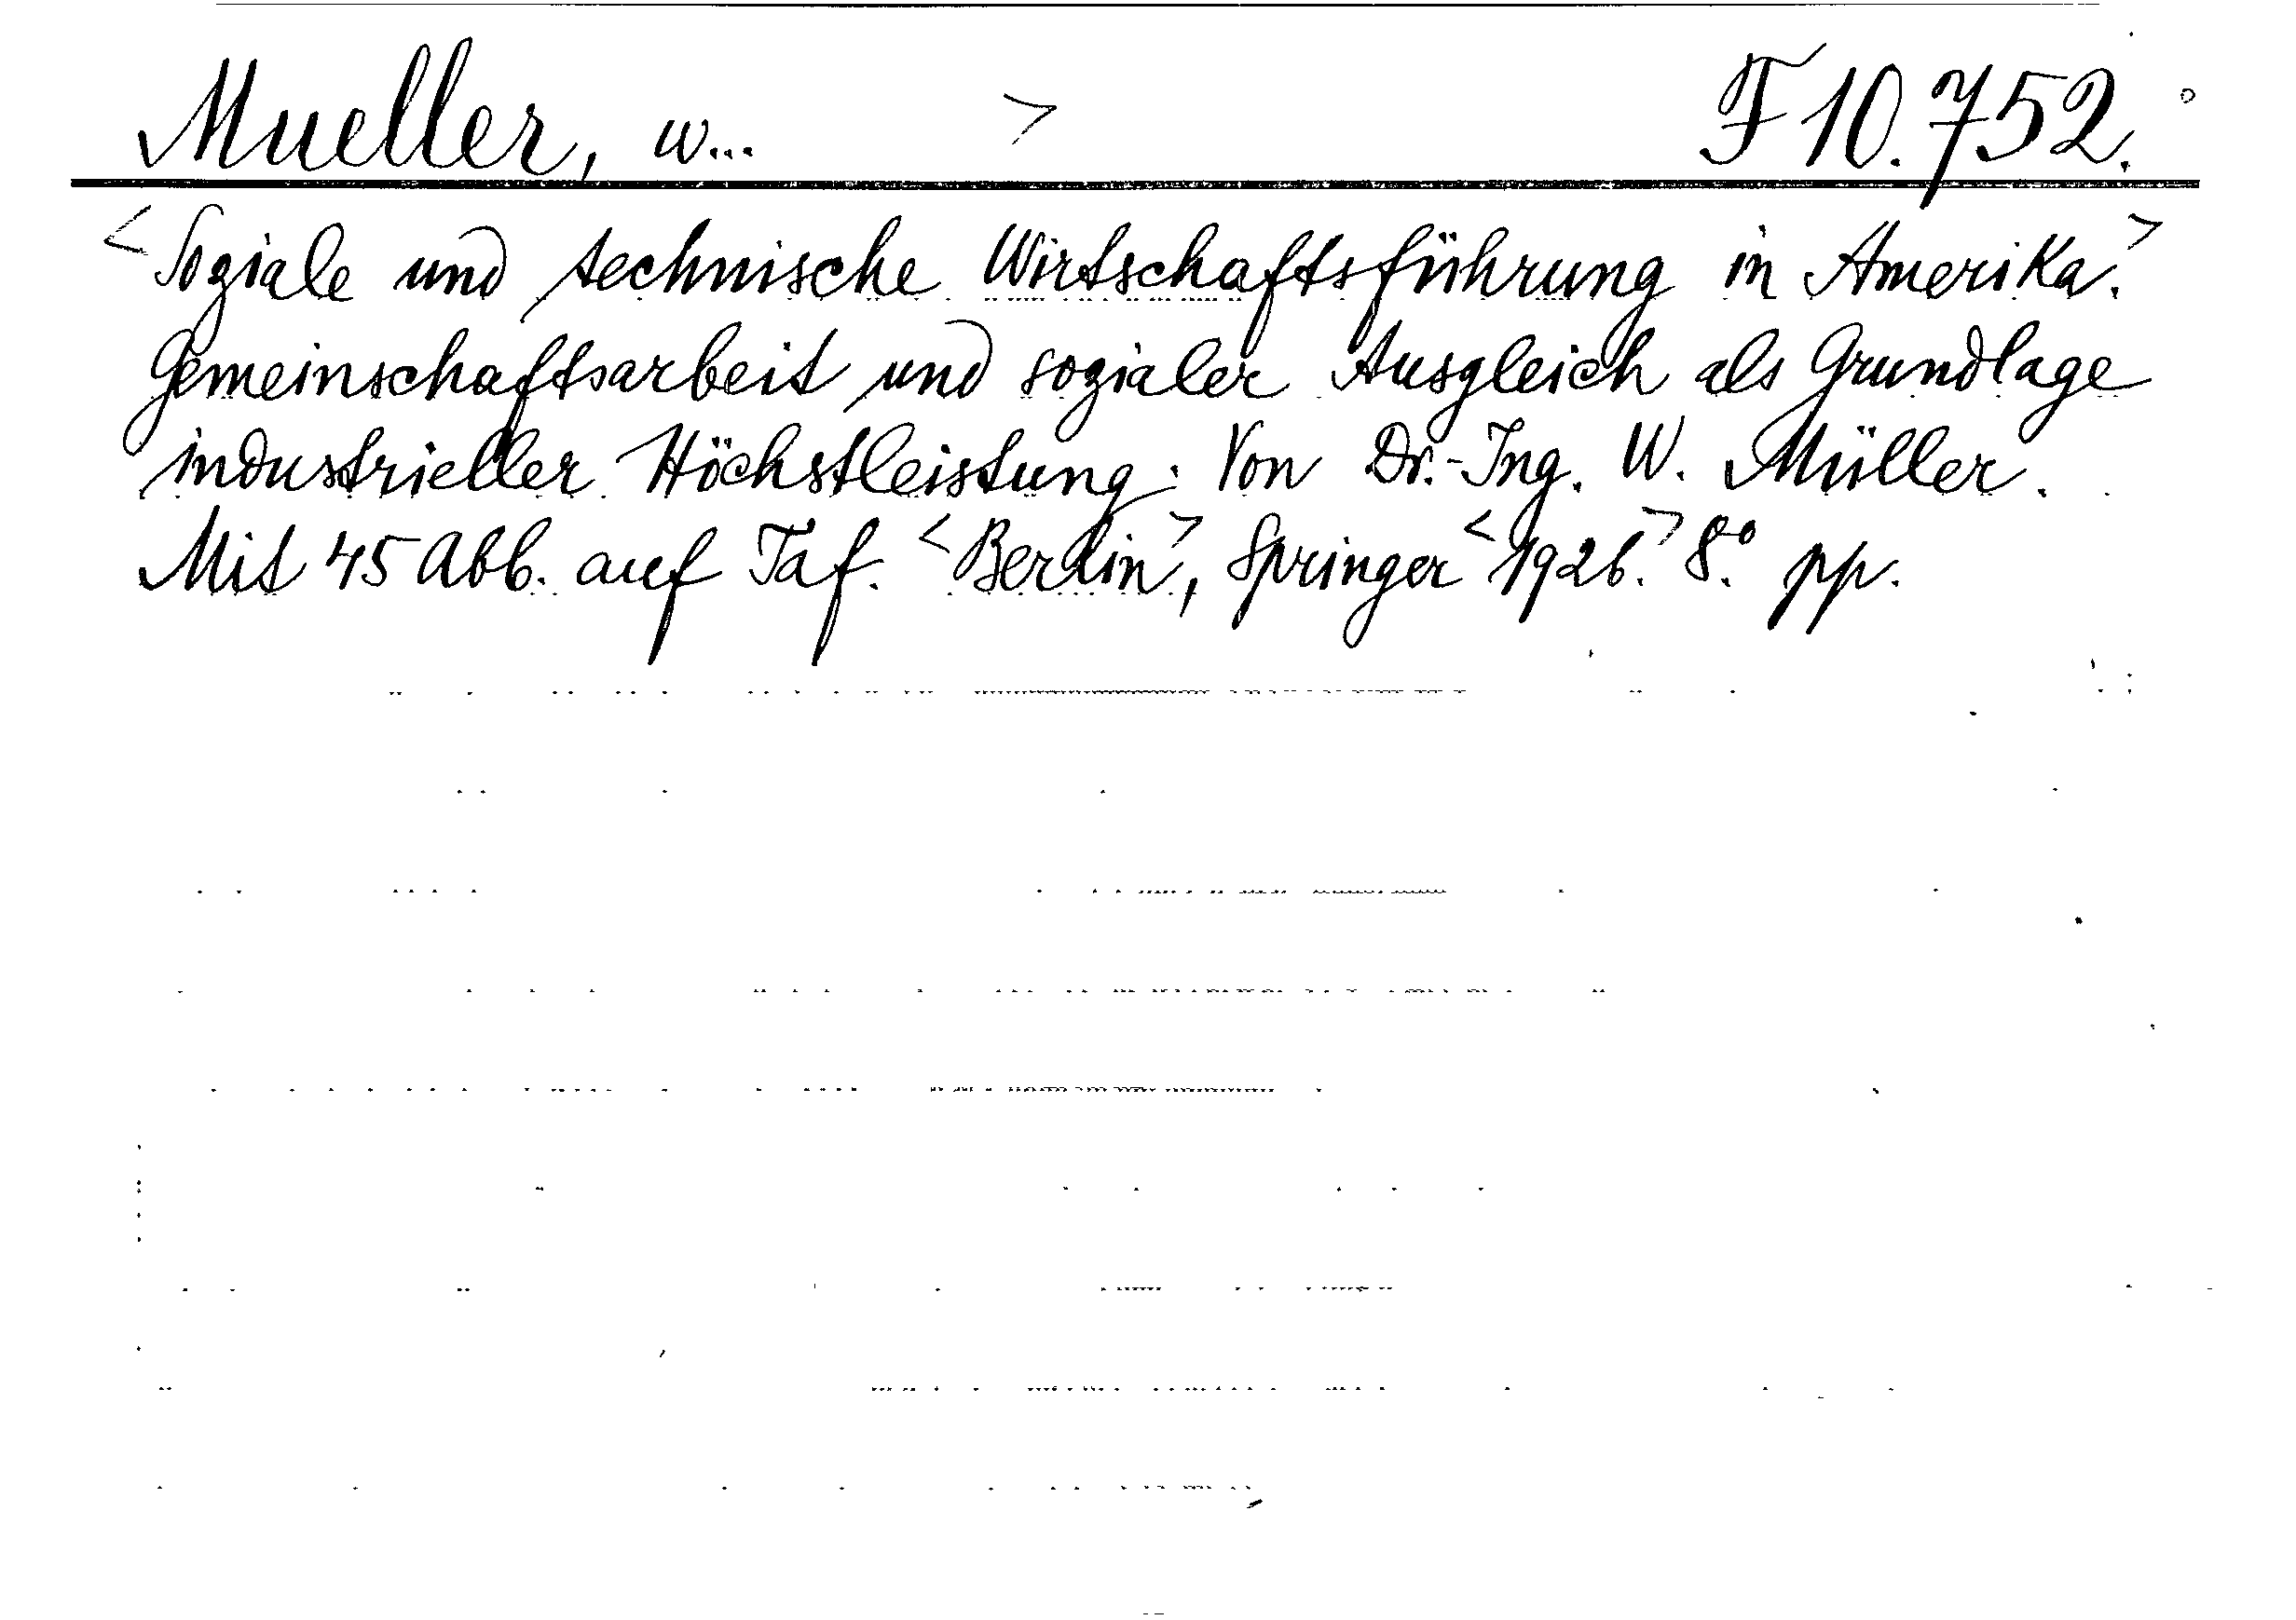 Mueller, W... > F 10.752.
<Soziale und technische Wirtschaftsführung in Amerika.>
Gemeinschaftsarbeit und sozialer Ausgleich als Grundlage
industrieller Höchstleistung. Von Dr.-Ing. W. Müller.
Mit 45 Abb. auf Taf. <Berlin>, Springer <1926.> 8.° pp.